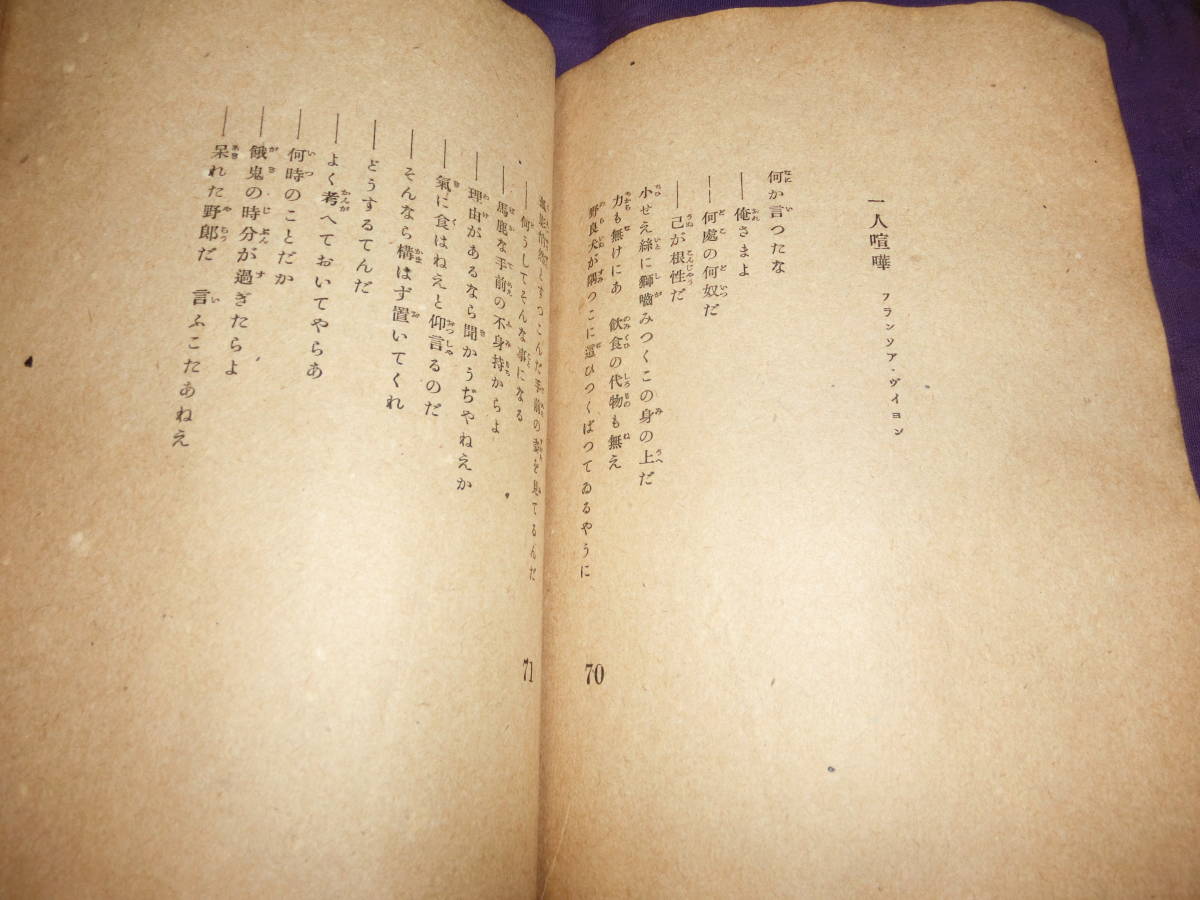 一人喧嘩
フランソア・ヴイヨン
何か言つたな
――俺さまよ
――何處の何奴だ
――己が根性だ
小せえ絲に獅嚙みつくこの身の上だ
力も無けにあ　飮食の代物も無え
野良犬が隅つこに這ひつくばつてゐるやうに
70
とすつこんだ手前の を見てるんだ
――何うしてそんな事になる
――馬鹿な手前の不身持からよ
――理由があるなら聞かうぢやねえか
――氣に食はねえと仰言るのだ
――そんなら構はず置いてくれ
――どうするてんだ
――よく考へておいてやらあ
――何時のことだか
――餓鬼の時分が過ぎたらよ
――呆れた野郎だ　言ふこたあねえ
71